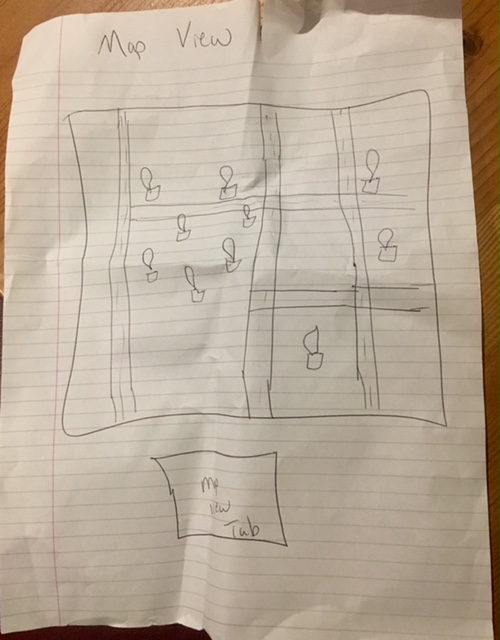 Map View
Map
View
Tab